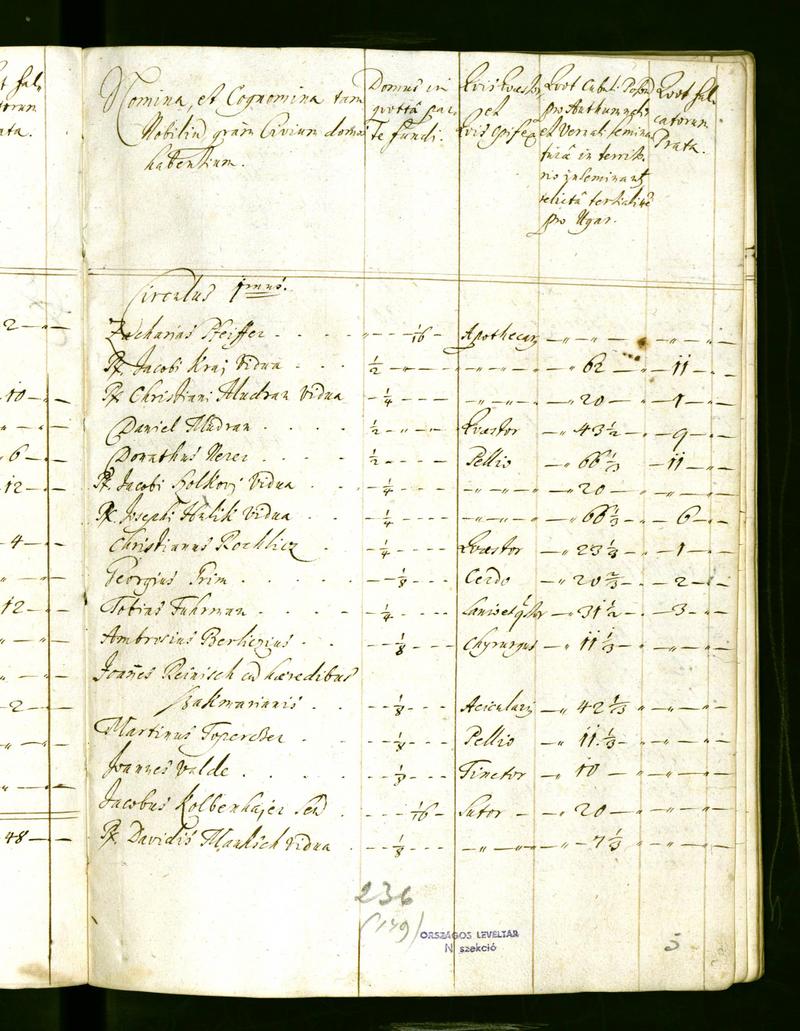 t fal„
torum
ata.
Nomina, et Cognomina tam
Nobiliũ quàm Civium domos
habentium.
Domus in
quottâ par„
te fundi.
Qvis Qvæstor
et
Qvis Opifex
Qvot Cubul. Poson
pro Authumnali
et Vernali semina
turâ in territo
rio inseminant
relictâ tertialitẽ
pro Ugar.
Qvot fal„
catorum
Prata.
Circulus 1mus.
2
Zacharias Pfeiffer 1/16 Apothecar
P. Jacobi Kraj Vidua 1/2 62 11
10 P. Christiani Mudran Vidua 1/4 20 1
Daniel Mudran 1/2 Qvæstor 43 1/2 9
6 Donathus Nerer 1/2 Pellio 66 1/3 11
12 P. Jacobi Holkovj Vidua 1/4 20
P. Josephi Hulik Vidua 1/4 66 1/3 6
4 Christianus Rochlicz 1/4 Qvæstor 23 1/3 1
Georgius Prim 1/8 Cerdo 20 2/3 2
12 Tobias Fuhrman 1/4 31 1/2 3
Ambrosius Berkezius 1/8 Chyrurgus 11 1/3
Joañes Reinisch cũ hæredibus
2 Szakmarianis 1/8 Acicularj 42 1/3
Martinus Toperczer 1/8 Pellio 11 1/3
Joannes Valde 1/8 Tinctor 10
Jacobus Kolbenhajer Señ 1/16 Sutor 20
48 P. Davidis Manksch Vidua 1/8 7 1/3
236
(149)
ORSZÁGOS LEVÉLTÁR
N szekció
5